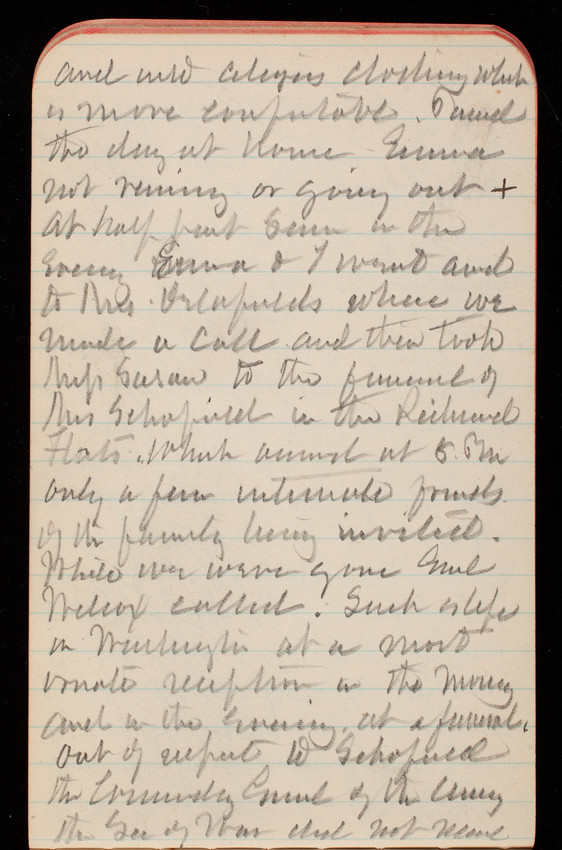 and citizens clothing which
is more comfortable. Passed
the day at home Emma
not rising or going out +
At half past seven in the
Evening Emma & I went and
to Mrs. where we
made a call and then took
Miss Susan to the funeral of
Mrs Schofield in the Richmond
Flats. Which occurred at 8 PM
only a few intimate friends
of the family being invited.
While we were gone Genl
Wilcox called. Such is life
in Washington at a most
ornate reception in the morng
and in the Evening, at a funeral.
Out of respect to Schofield
the Comndg Genl of the Army
the Sec of War did not receive